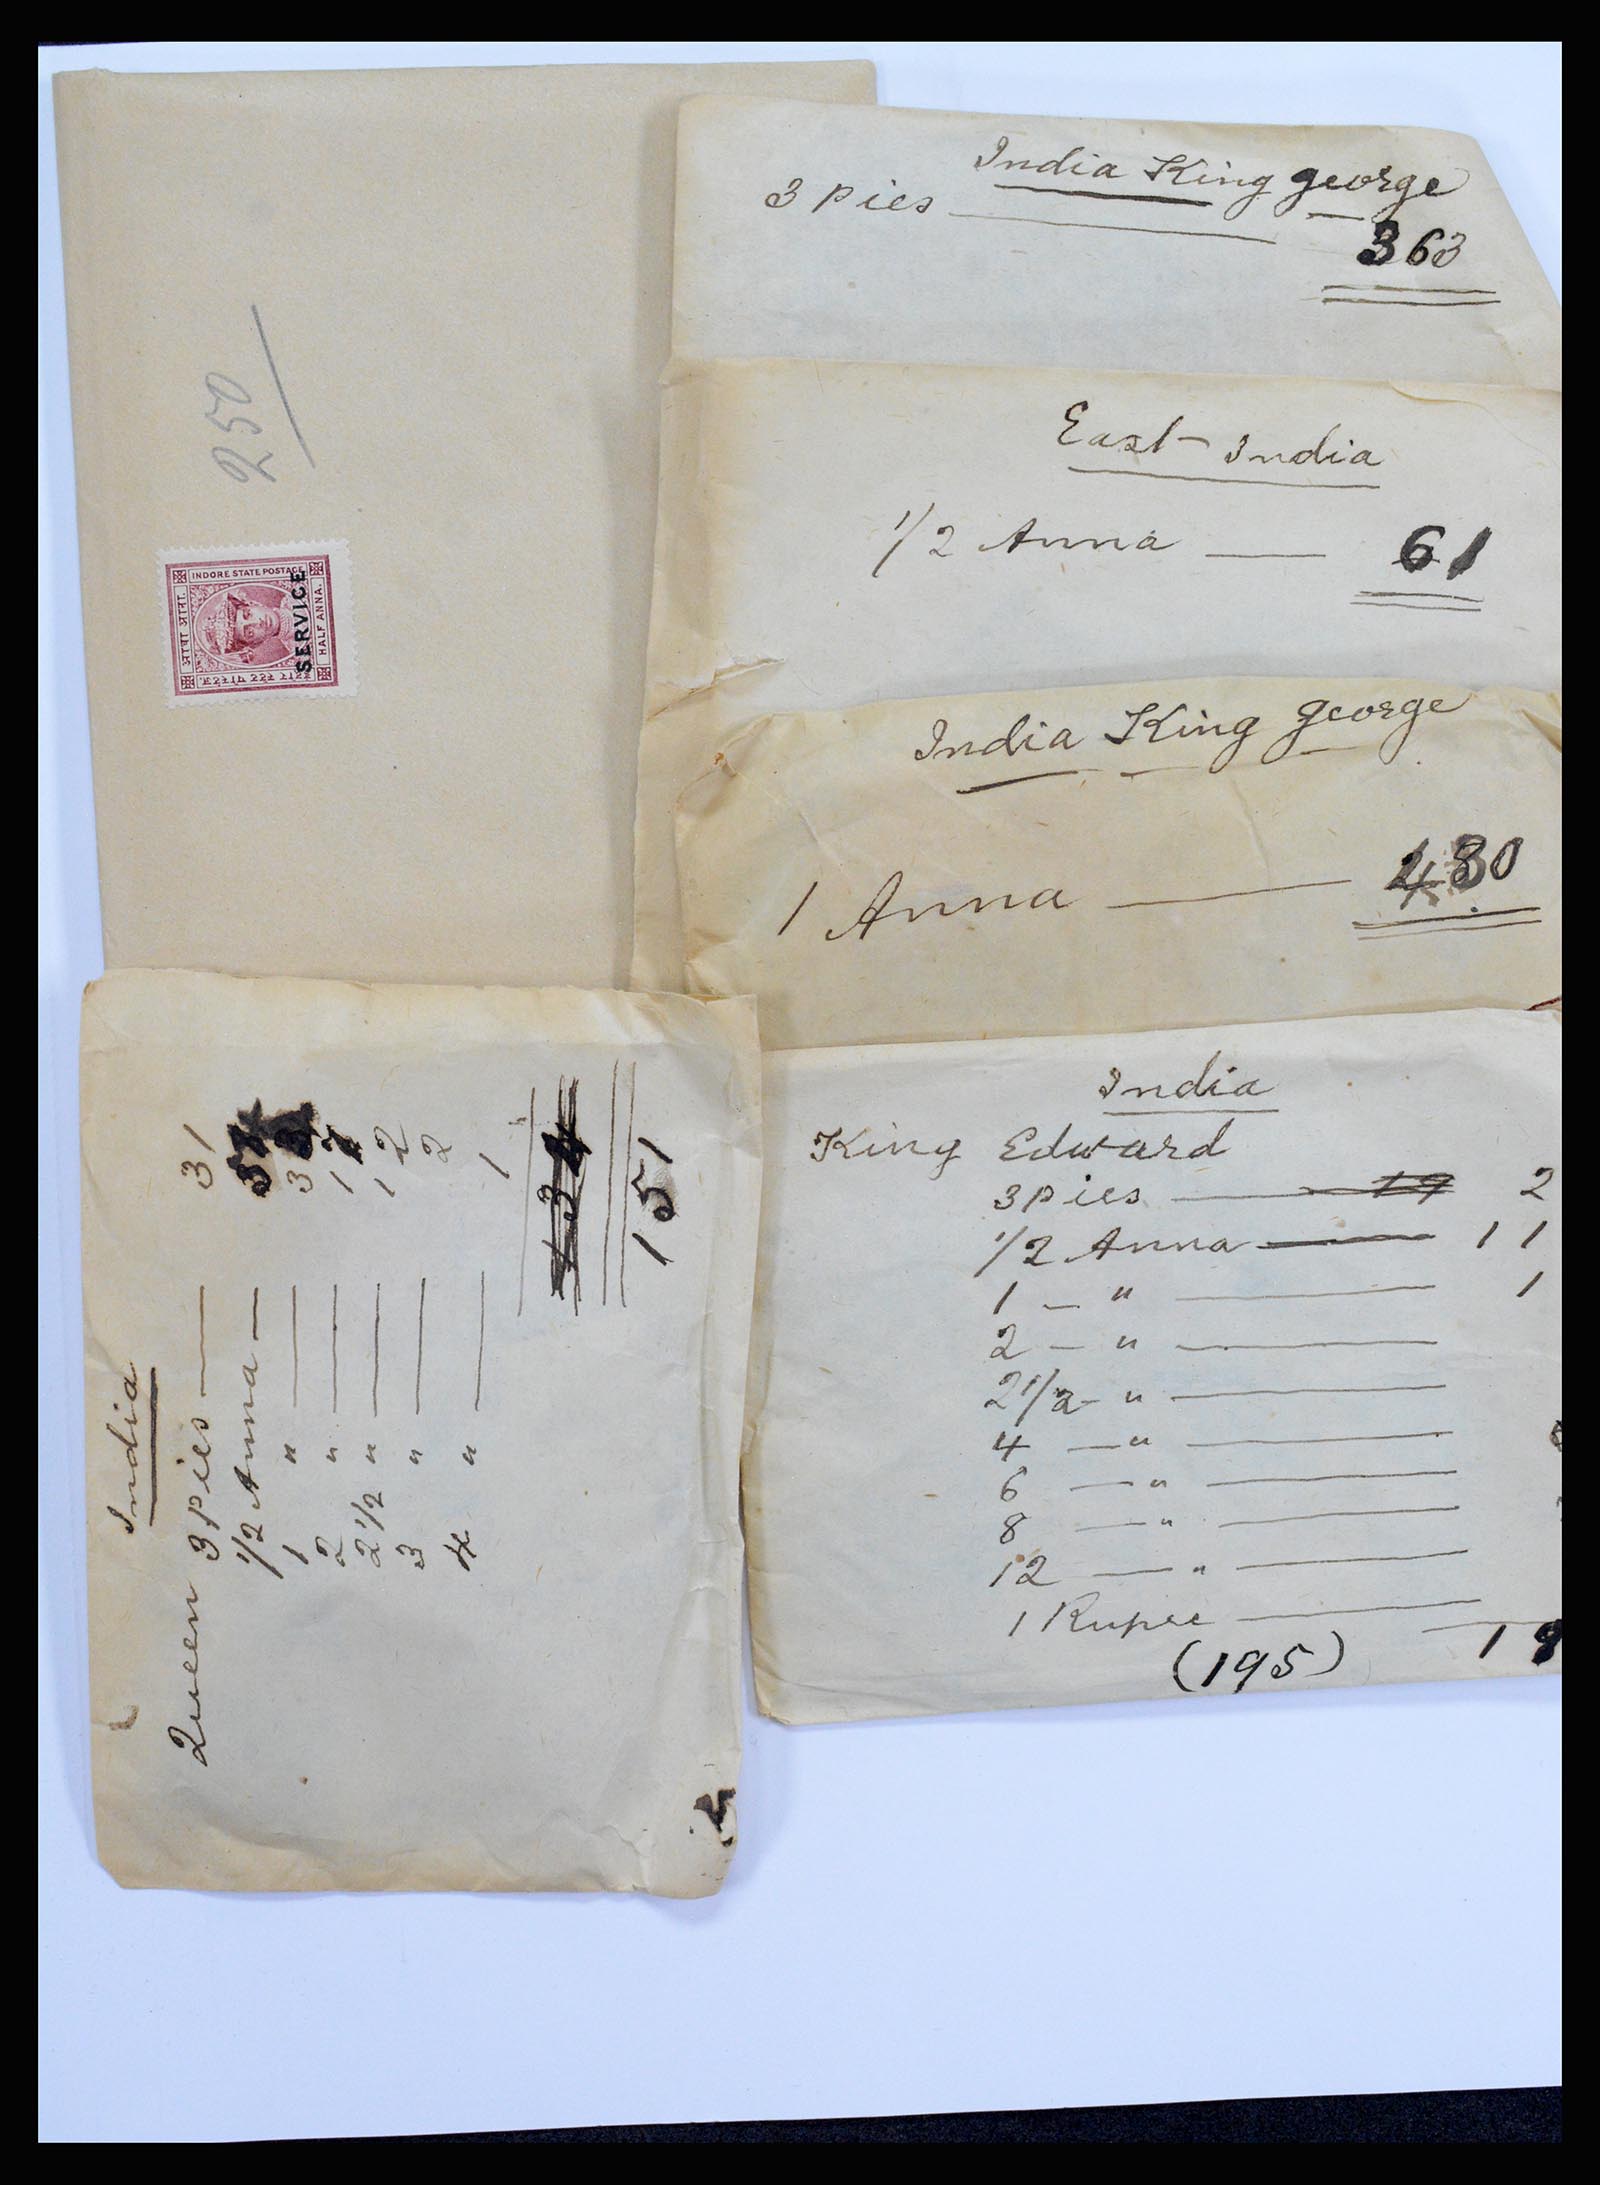 250
INDORE STATE POSTAGE
आधा आना.
HALF ANNA.
SERVICE
India King george
3 pies 363
East India
1/2 Anna 61
India King george
1 Anna 80
India
Queen 3 pies 31
1/2 Anna
1 " 3
2 " 1
2 1/2 " 12
3 " 2
4 " 1
134
151
India
King Edward
3 pies 19 2
1/2 Anna 11
1 " 1
2 "
2 1/2 "
4 "
6 "
8 "
12 "
1 Rupee
(195) 1